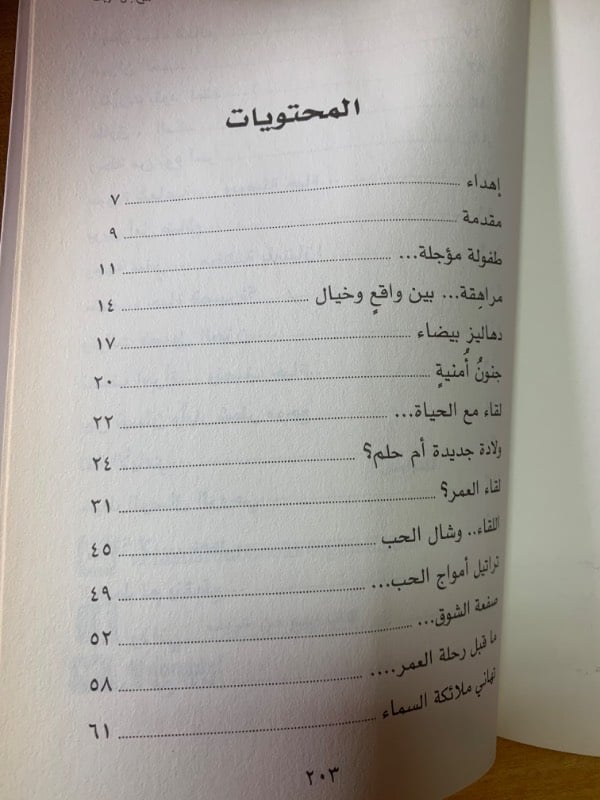 المحتويات
إهداء ........ ٧
مقدمة ........ ٩
طفولة مؤجلة... ........ ١١
مراهِقة... بين واقعٍ وخيال ........ ١٤
دهاليز بيضاء ........ ١٧
جنونُ أُمنيةٍ ........ ٢٠
لقاء مع الحياة... ........ ٢٢
ولادة جديدة أم حلم؟ ........ ٢٤
لقاء العمر؟ ........ ٣١
اللقاء.. وشال الحب ........ ٤٥
تراتيل أمواج الحب... ........ ٤٩
صفعة الشوق... ........ ٥٢
ما قبل رحلة العمر.... ........ ٥٨
تهاني ملائكة السماء ........ ٦١
٢٠٣